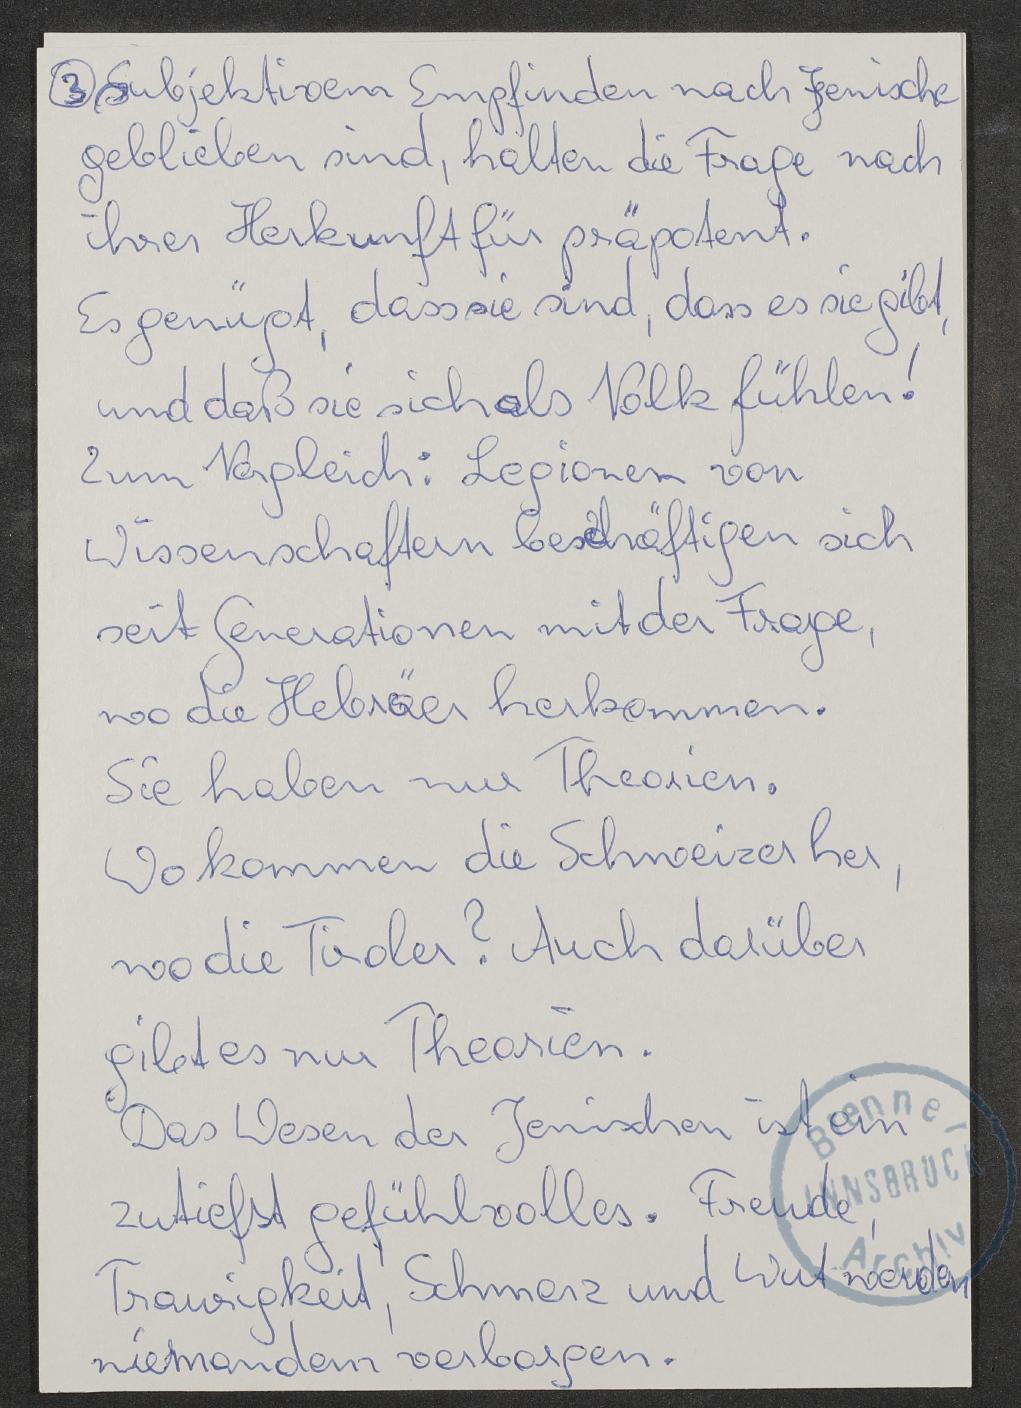 ③ subjektivem Empfinden nach Jenische
geblieben sind, halten die Frage nach
ihrer Herkunft für präpotent.
Es genügt, dass sie sind, dass es sie gibt,
und daß sie sich als Volk fühlen!
Zum Vergleich: Legionen von
Wissenschaftern beschäftigen sich
seit Generationen mit der Frage,
wo die Hebräer herkommen.
Sie haben nur Theorien.
Wo kommen die Schweizer her,
wo die Tiroler? Auch darüber
gibt es nur Theorien.
Das Wesen der Jenischen ist ein
zutiefst gefühlvolles. Freude,
Traurigkeit, Schmerz und Wut werden
niemandem verborgen.
Brenner
INNSBRUCK
Archiv